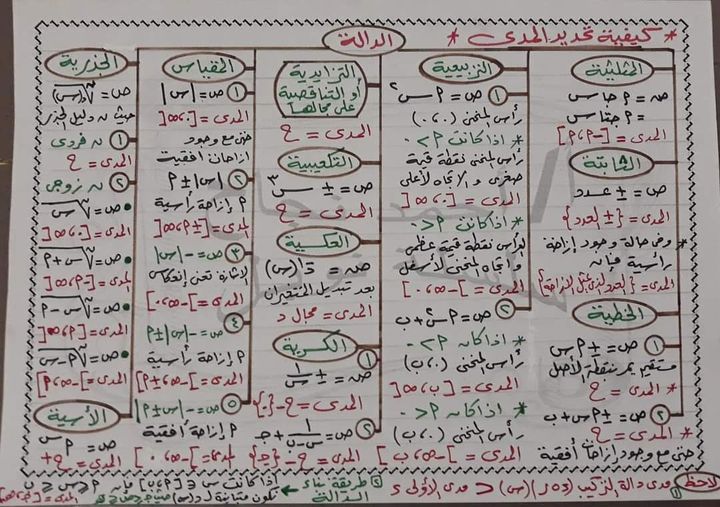 * كيفية تحديد المدى *
الدالة
المثلثية
ص = م حا س
= م حتا س
المدى = [-م، م]
الثابتة
ص = ± عدد
المدى = {± العدد}
* وفى حالة وجود إزاحة
رأسية فإنه
الخطية
① ص = ± م س
مستقيم يمر بنقطة الأصل
* المدى = ح
② ص = ± م س + ب
* المدى = ح
حتى مع وجود إزاحات أفقية
التربيعية
① ص = م س²
رأس المنحنى (٠،٠)
* اذا كانت م > ٠
رأس المنحنى نقطة قيمة
صغرى و الاتجاه لأعلى
المدى = [٠، ∞[
* اذا كانت م < ٠
الرأس نقطة قيمة عظمى
و اتجاه المنحنى لأسفل
المدى = ]-∞، ٠]
② ص = م س² + ب
* اذا كانه م > ٠
رأس المنحنى (٠، ب)
المدى = [ب، ∞[
* اذا كانه م < ٠
رأس المنحنى (٠، ب)
المدى = ]-∞، ب]
التزايدية
أو التناقصية
على مجالها
المدى = ح
التكعيبية
ص = ± س³
المدى = ح
العكسية
ص = د⁻¹(س)
بعد تبديل المتغيران
المدى = مجال د
الكسرية
① ص = ± ١/س
المدى = ح - {٠}
② ص = ١/(س - ن) + جـ
المدى = ح - {جـ}
المقياس
① ص = |س|
المدى = [٠، ∞[
حتى مع وجود
ازاحات افقية
② |س| ± م
م إزاحة رأسية
المدى = [± م، ∞[
③ ص = -|س|
الاشارة تعنى إنعكاس
المدى = ]-∞، ٠]
④ ص = -|س| ± م
م إزاحة رأسية
المدى = ]-∞، ± م]
⑤ ص = -|س ± م|
م إزاحة أفقية
المدى = ]-∞، ٠]
الجذرية
ص = ⁿ√د(س)
حيث ن دليل الجذر
① ن فردى
المدى = ح
② ن زوجى
• ص = ⁿ√س
المدى = [٠، ∞[
• ص = ⁿ√س + م
• ص = ⁿ√س - م
• ص = ⁿ√م - س
الأسية
ص = مˢ
المدى = ح+
لاحظ
① مدى دالة التركيب (د₁ ∘ ر)(س) ⊂ مدى الأولى د
② طريقة بناء الدالة
اذا كانت س ∈ [م، ب] فإنه م ≤ س ≤ ب